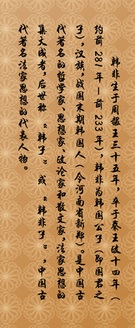 韩非生于周赧王三十五年，卒于秦王政十四年（
约前281年－前233年），韩非为韩国公子（即国君之
子），汉族，战国末期韩国人（今河南省新郑）。是中国古
代著名的哲学家、思想家，政论家和散文家，法家思想的
集大成者，后世称“韩子”或“韩非子”，中国古
代著名法家思想的代表人物。